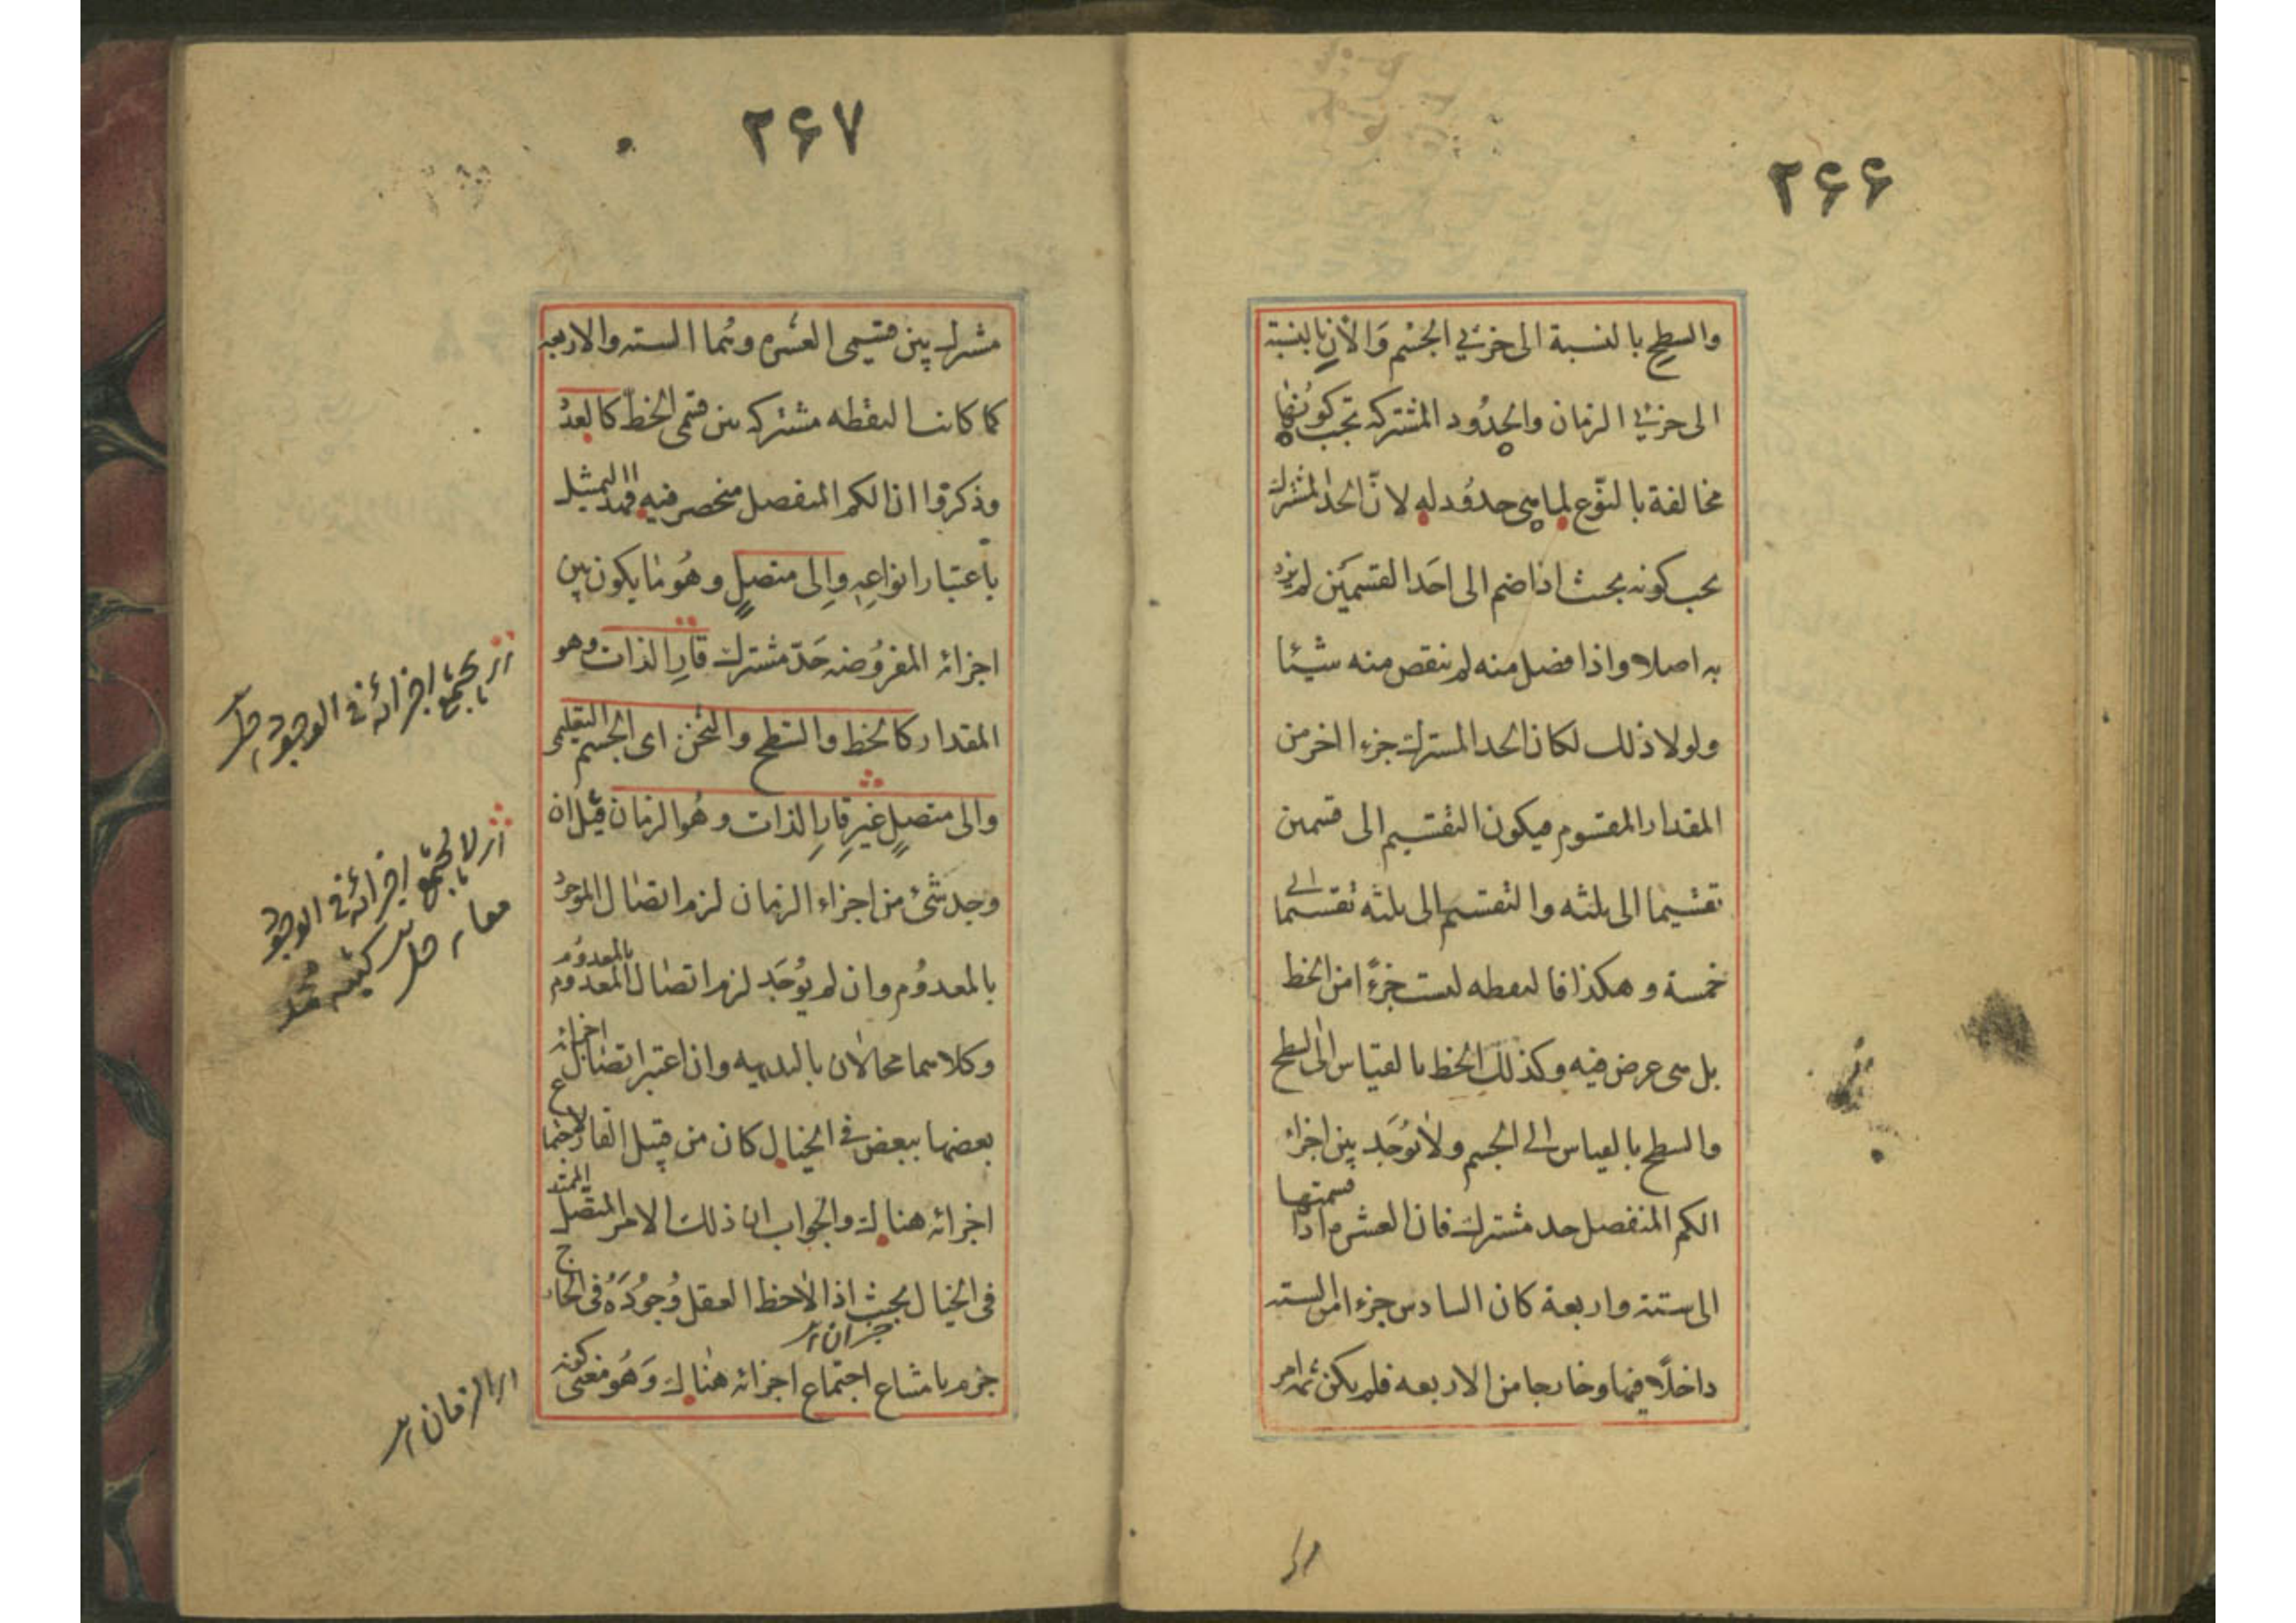 ٢۶۶
والسطح بالنسبة الى جزئي الجسم وَالآنِ بالنسبة
الى جزئي الزمان والحِدُود المشتركه يجب كونُها
مخالفة بالنّوع لما هى حدُود له لانّ الحد المشترك
يجب كونه بحيث اذا ضم الى احَد القسمَين لم يزد
به اصلا واذا فصل منه لم ينقص منه شيئا
ولولا ذلك لكان الحد المشترك جزءا اخر من
المقدار المقسوم فيكون التقسيم الى قسمين
تقسيما الى ثلثه والتقسيم الى ثلثه تقسيما الى
خمسة وهكذا فالنقطه ليست جزءً امن الخط
بل هى عرض فيه وكذلك الخط بالقياس الى السطح
والسطح بالقياس الى الجسم ولا توُجَد بين اجزاء
الكم المنفصل حد مشترك فان العشره اذا قسمتها
الى ستة واربعة كان السادس جزءا من السته
داخلًا فيها وخارجا من الاربعه فلم يكن ثمه امر
٢۶٧
مشترك بين قسمى العشره وهُما السته والاربعه
كما كانت النقطه مشتركه بين قسمى الخط كالعدد
وذكروا ان الكم المنفصل منحصر فيه فهذا التمثيل
باعتبار انواعِهِ وإلى متصلٍ وهُو ما يكون بين
اجزائه المفروُضه حَدّ مشترك قارِ الذات وهو
المقدار كالخط والسّطح والثخن اى الجسم التعليمى
والى متصلٍ غيرِ قارِ الذات وهُو الزمان قيل ان
وجد شئ من اجزاء الزمان لزم اتصال الموجودُ
بالمعدوُم وان لم يوُجَد لزم اتصال المعدوم بالمعدوُم
وكلاهما محالان بالبديهه وان اعتبر اتصال اجزائه
بعضها ببعض فى الخيال كان من قبيل القار لاجتماع
اجزائه هناك والجواب ان ذلك الامر المتصل الممتد
فى الخيال بحيث اذا لاحظ العقل وُجودَهُ فى الخارج
جزم بامتناع اجتماع اجزائه هناك وَهُو معنى كونه
يجتمع اجزائه فى الوجود
لا يجتمع اجزائه فى الوجود
معا
اى الزمان